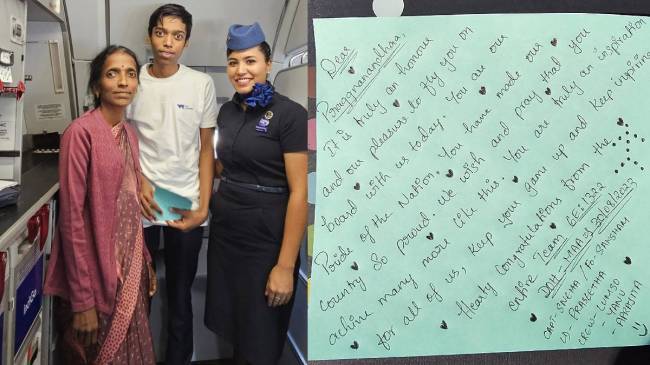 IndiGo
Dear
Praggnanandhaa,
It is truly an honour
and our pleasure to fly you on
board with us today. You are our
Pride of the Nation. You have made our
country so proud. We wish and pray that you
achive many more like this. You are truly an inspiration
for all of us, keep your game up and keep inspiring
Hearty congratulations from the
entire Team 6E-1322
DOH-MAA
CAP- SNEHA / FO
LD- PRASEETHA
CREW-